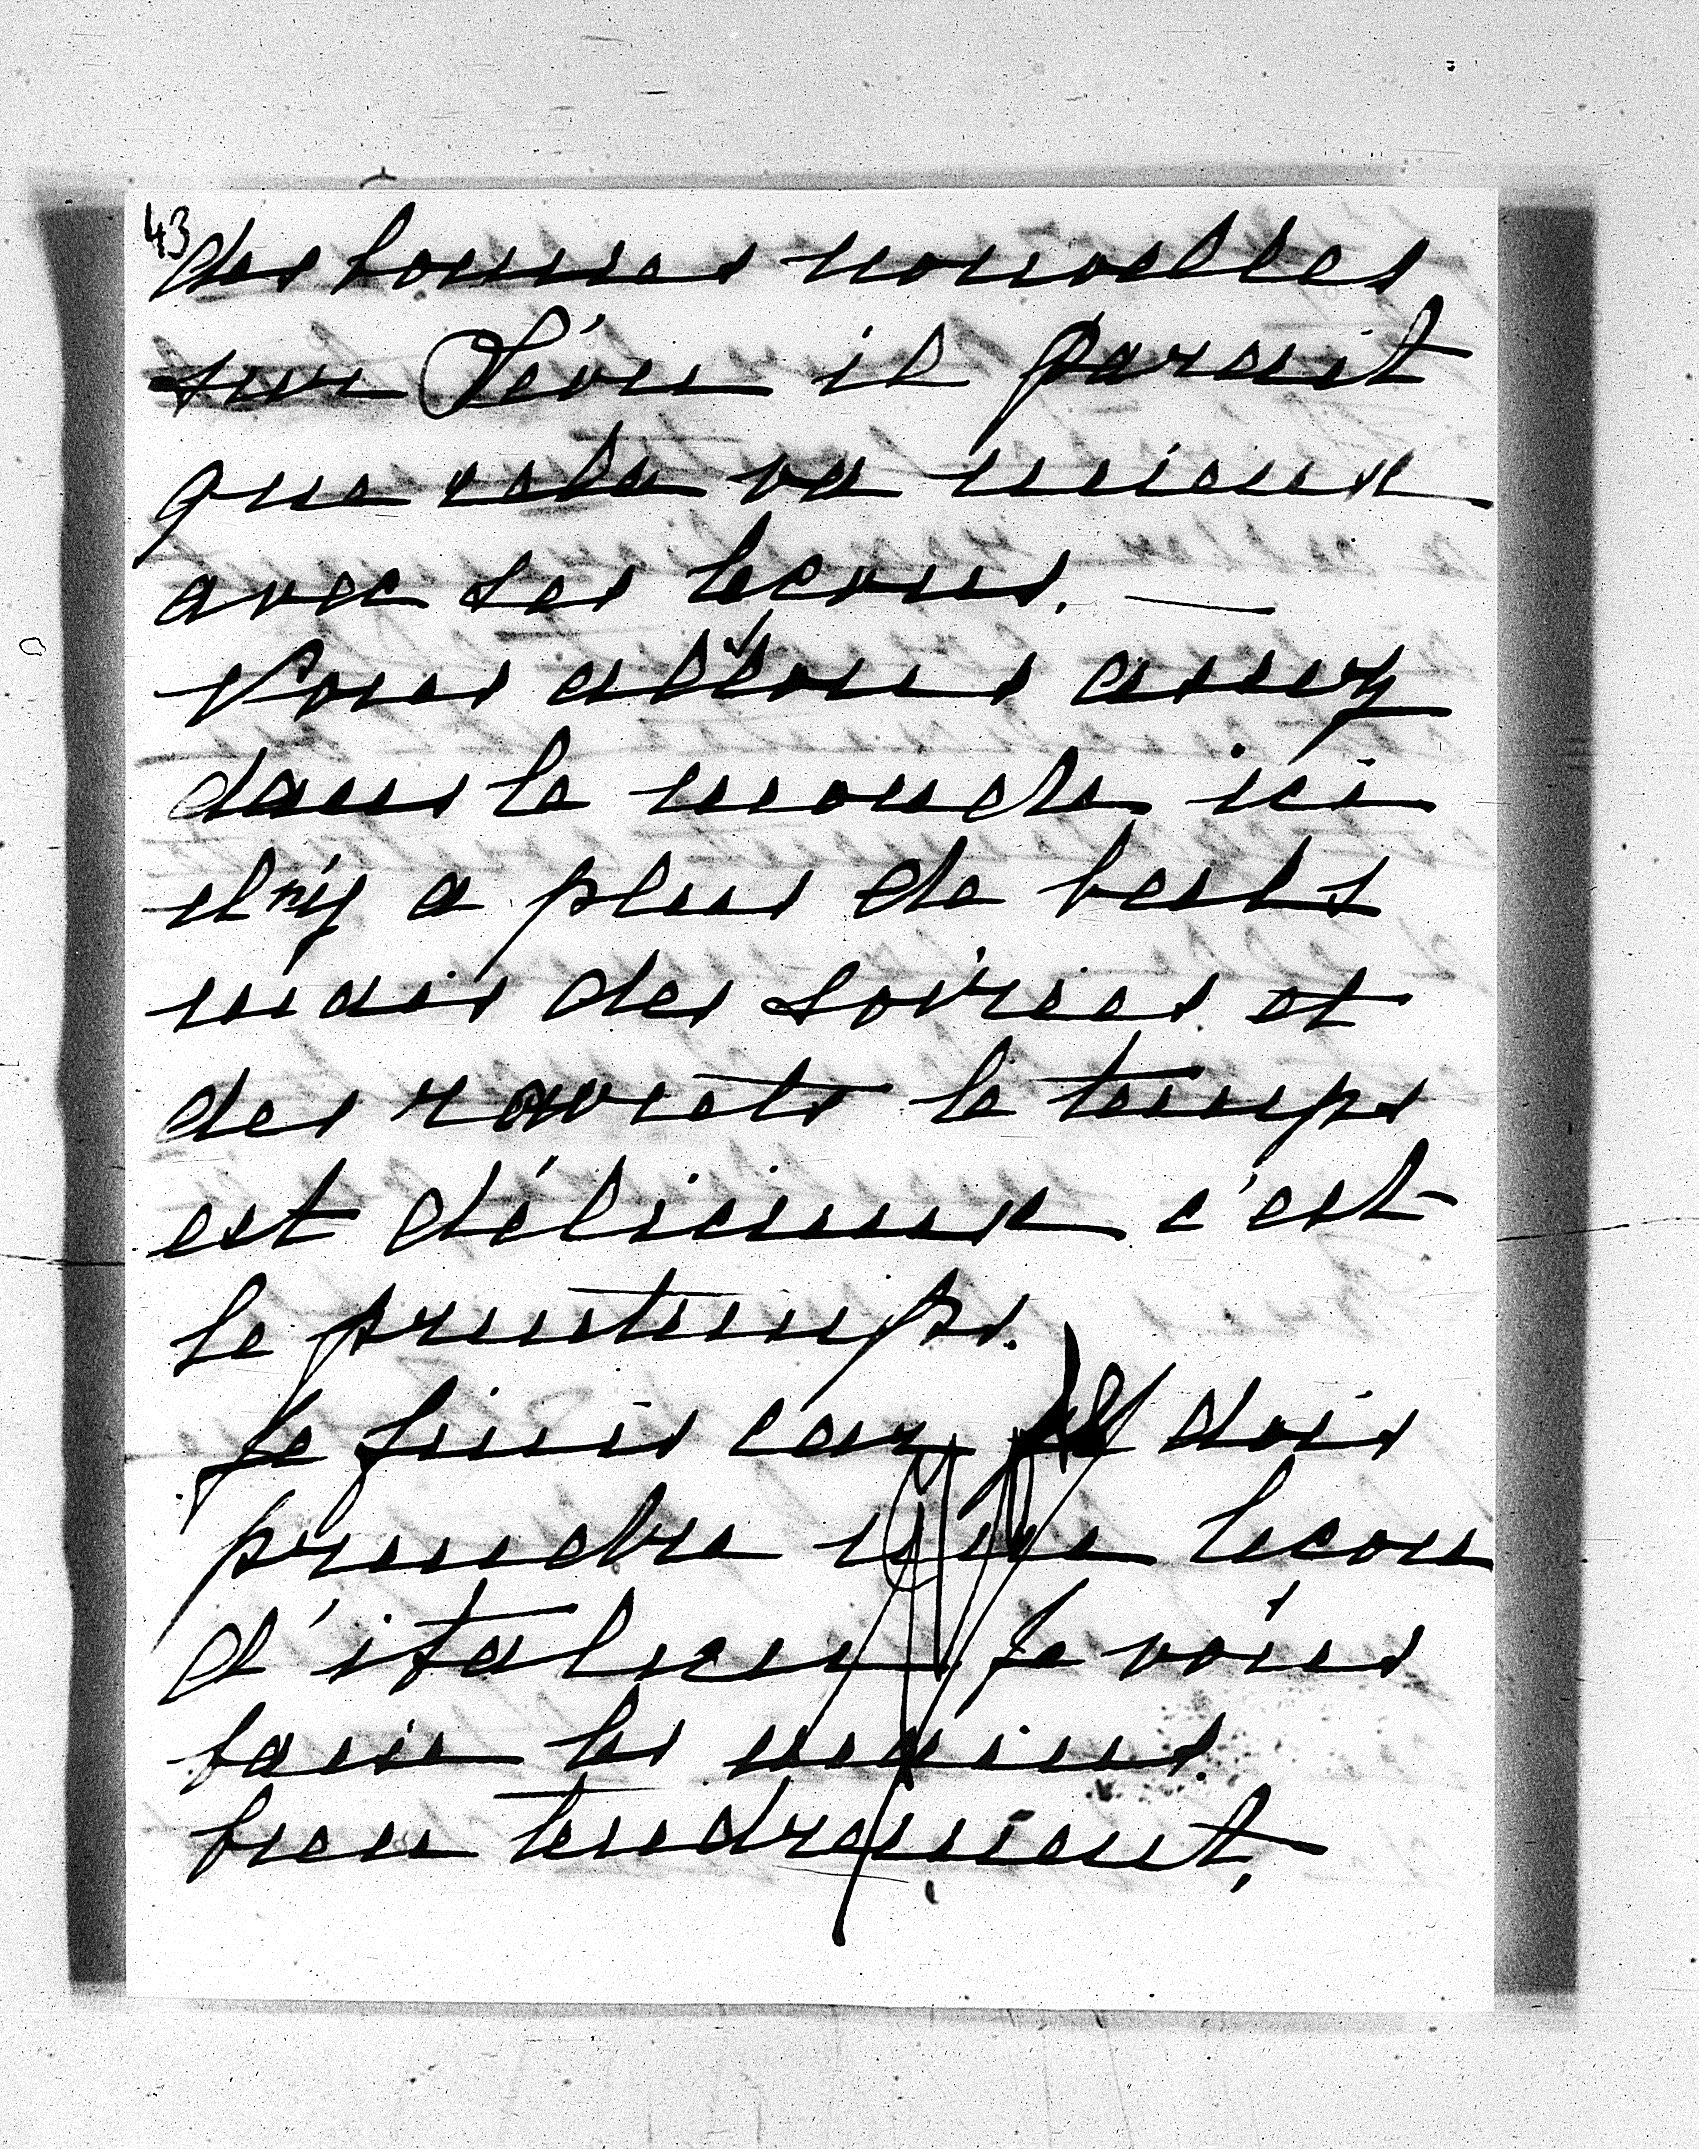 43
des bonnes nouvelles
sur Péou il parait
que cela va mieux
avec ses leçons. —
Nous allons assez
dans le monde ici
il n'y a plus de bals
mais des soirées et
des rawiets le temps
est délicieux c'est
le printemps.
Je finis car je dois
prendre une leçon
d'italien Je vous
baise les mains.
bien tendrement,